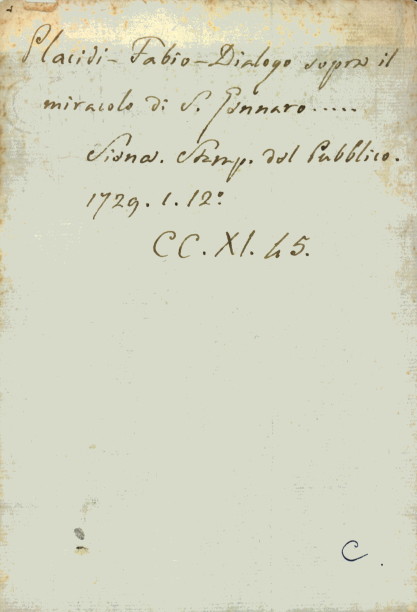 Placidi - Fabio - Dialogo sopra il
miracolo di S. Gennaro.....
Siena. Stamp. del Pubblico.
1729. 1. 12º
CC. XI. 45.
C.